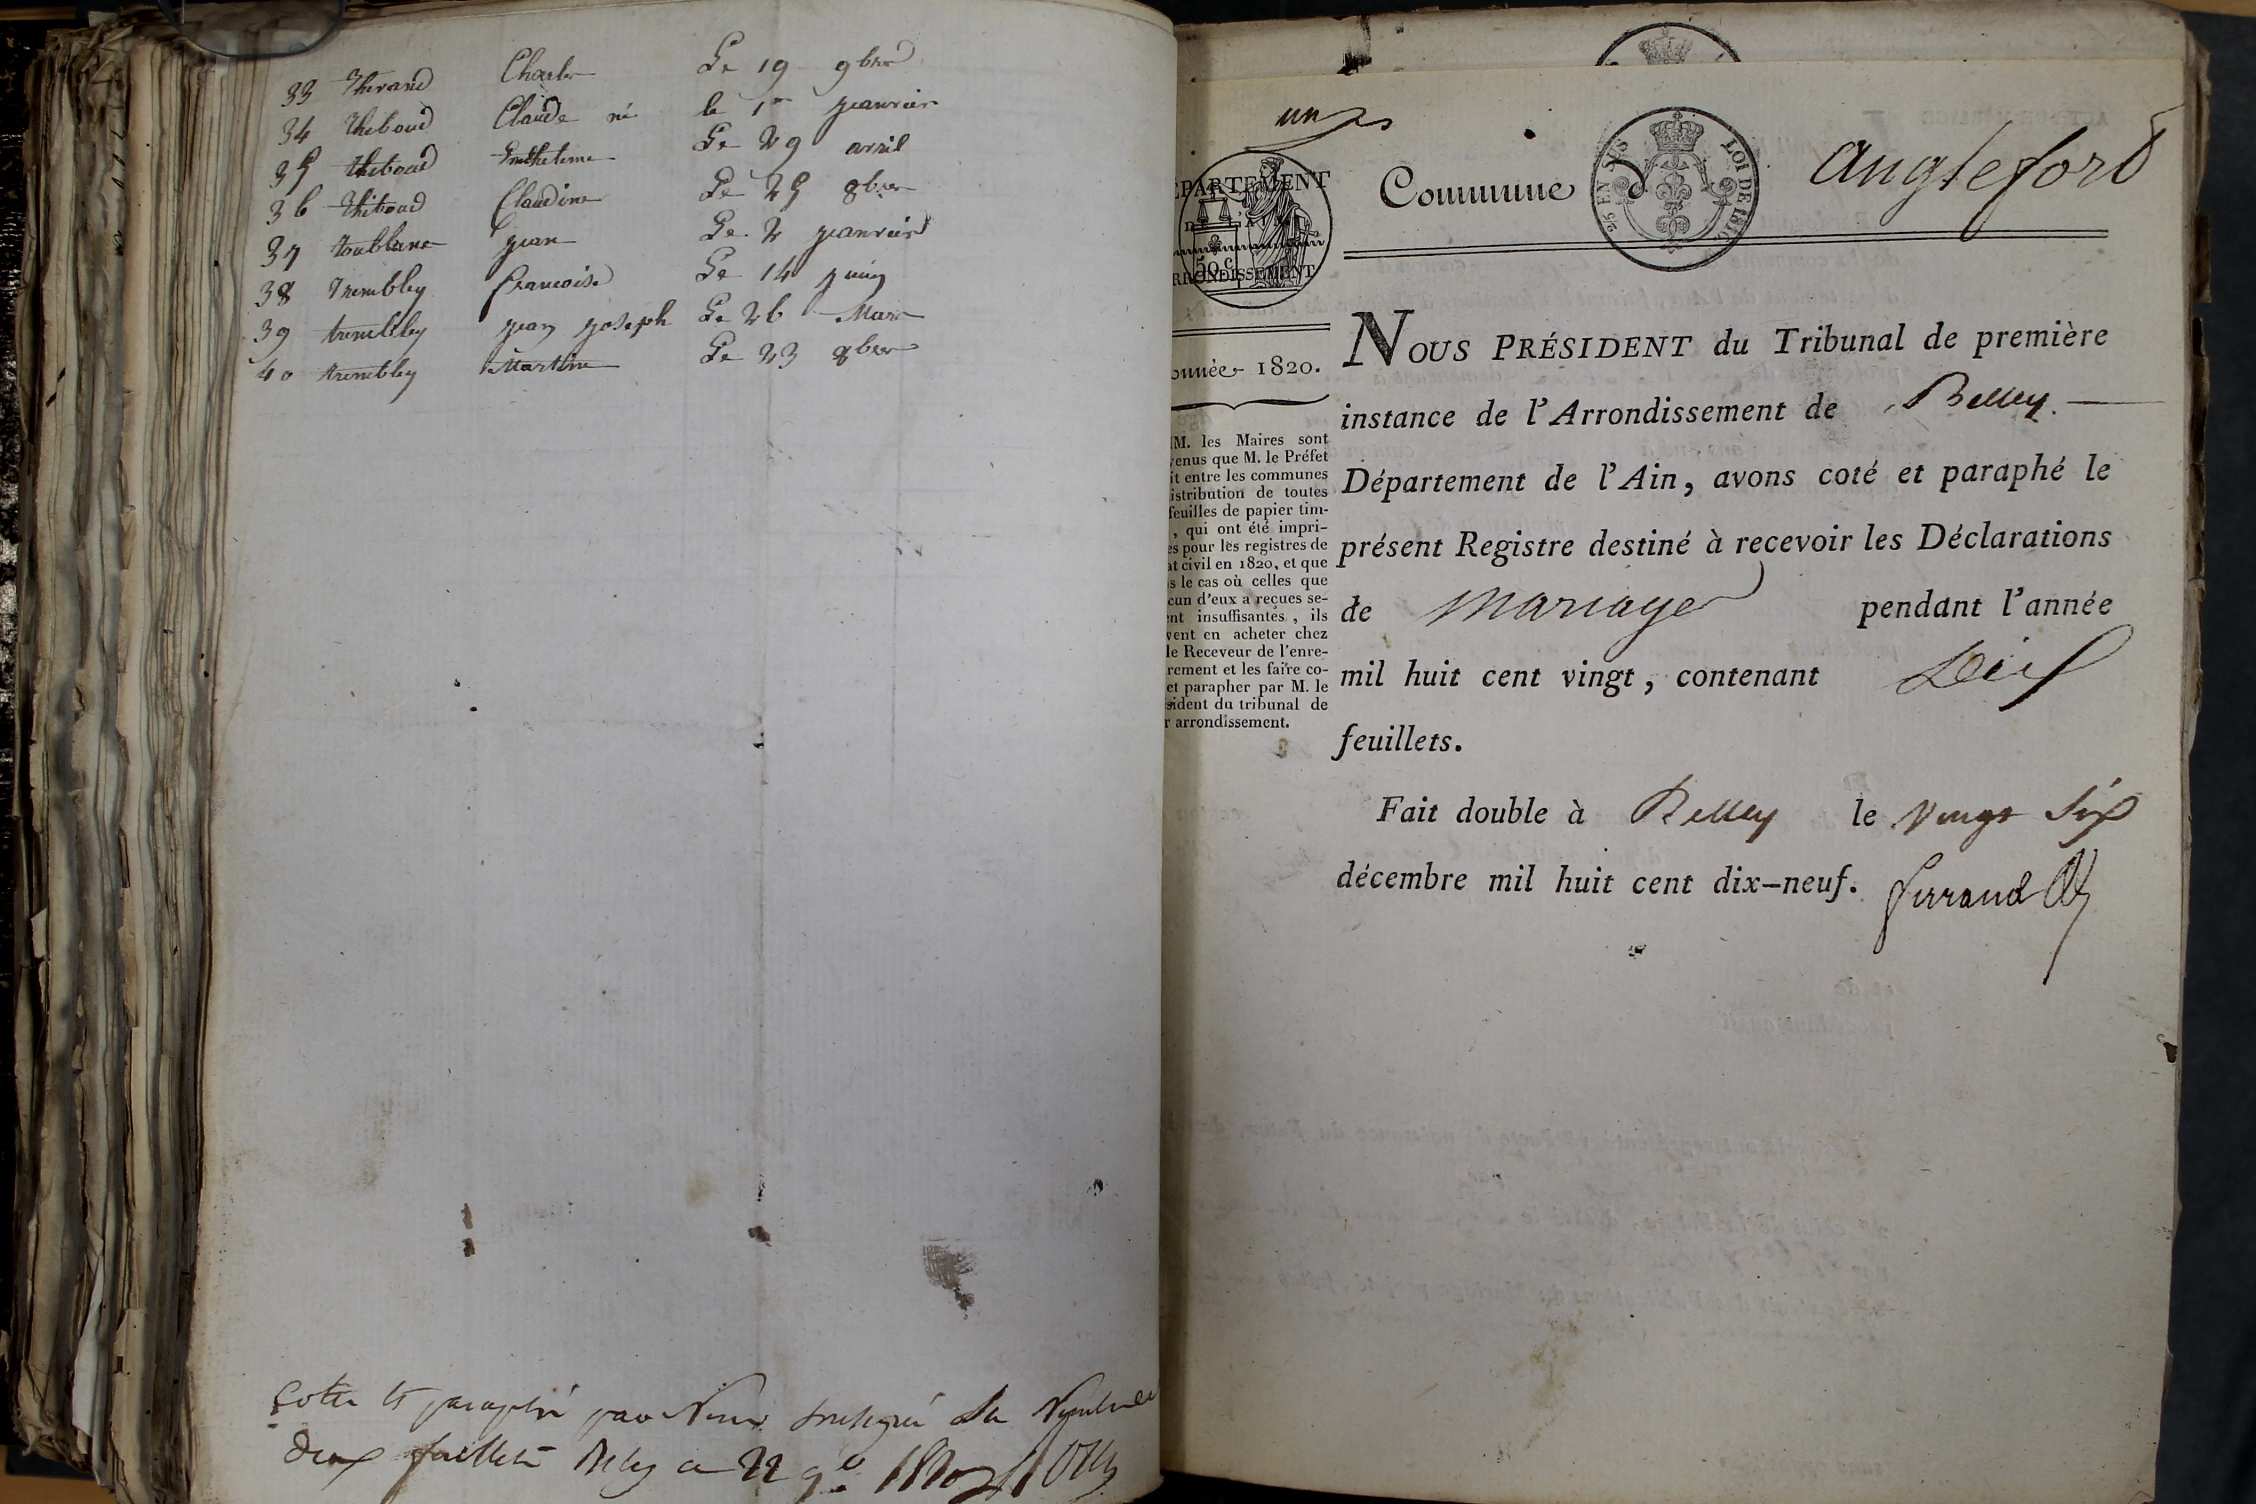 33 Therand Charles Le 19 9bre
34 thiboud Claude né le 1er janvier
35 thiboud Enthelme Le 29 avril
36 thiboud Claudine Le 25 8bre
37 toublanc jean Le 2 janvier
38 trembley francoise Le 14 juin
39 trembley jean joseph Le 26 Mars
40 trembley Martin Le 23 8bre
Cotté et paraphé par Nous soussigné
deux feuillets Belley ce 22 9bre
un
Commune d' anglefort
25 EN SUS LOI DE 1816
ÉPARTEMENT
50 c
RRONDISSEMENT
onnée 1820.
M. les Maires sont
venus que M. le Préfet
it entre les communes
istribution de toutes
feuilles de papier tim-
, qui ont été impri-
es pour les registres de
at civil en 1820, et que
s le cas où celles que
cun d'eux a reçues se-
ent insuffisantes, ils
vent en acheter chez
le Receveur de l'enre-
rement et les faire co-
et parapher par M. le
sident du tribunal de
r arrondissement.
NOUS PRÉSIDENT du Tribunal de première
instance de l'Arrondissement de Belley.
Département de l'Ain, avons coté et paraphé le
présent Registre destiné à recevoir les Déclarations
de Mariage pendant l'année
mil huit cent vingt, contenant Dix
feuillets.
Fait double à Belley le vingt six
décembre mil huit cent dix-neuf. ferrand